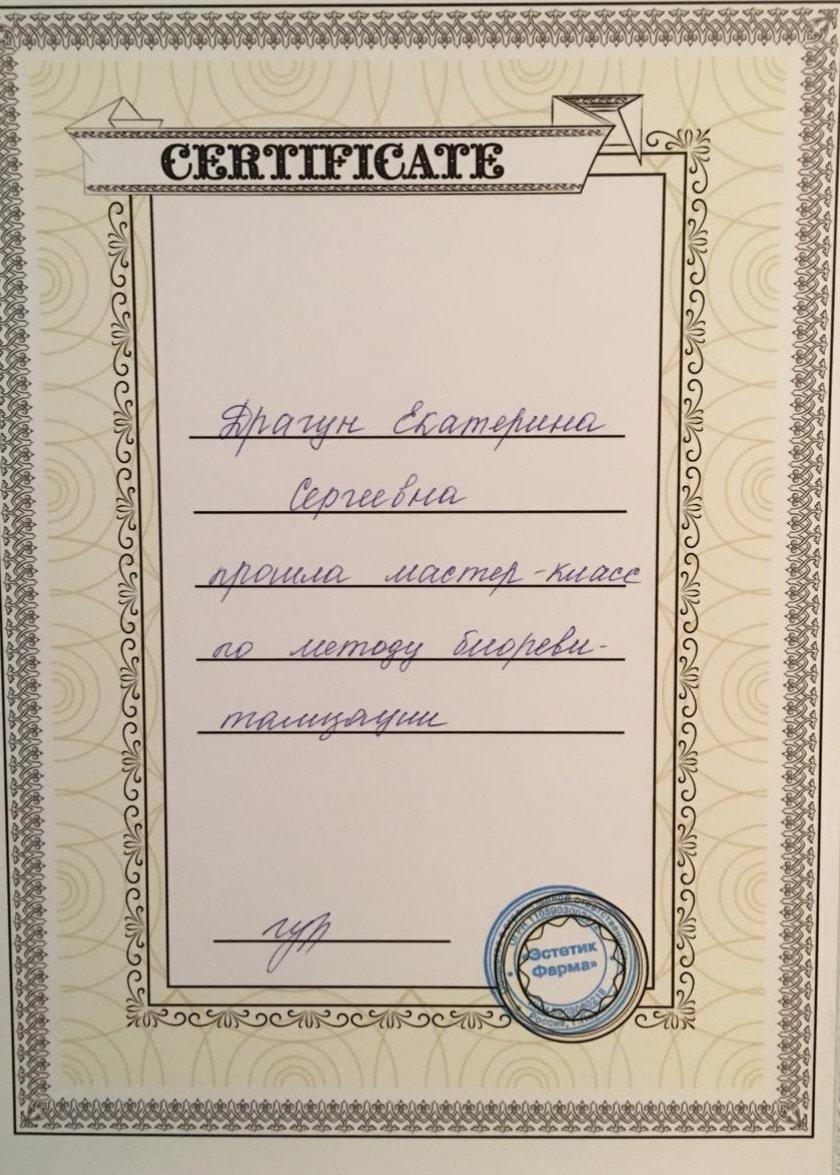 CERTIFICATE
Драгун Екатерина
Сергеевна
прошла мастер-класс
по методу биореви-
тализации
«Эстетик
Фарма»